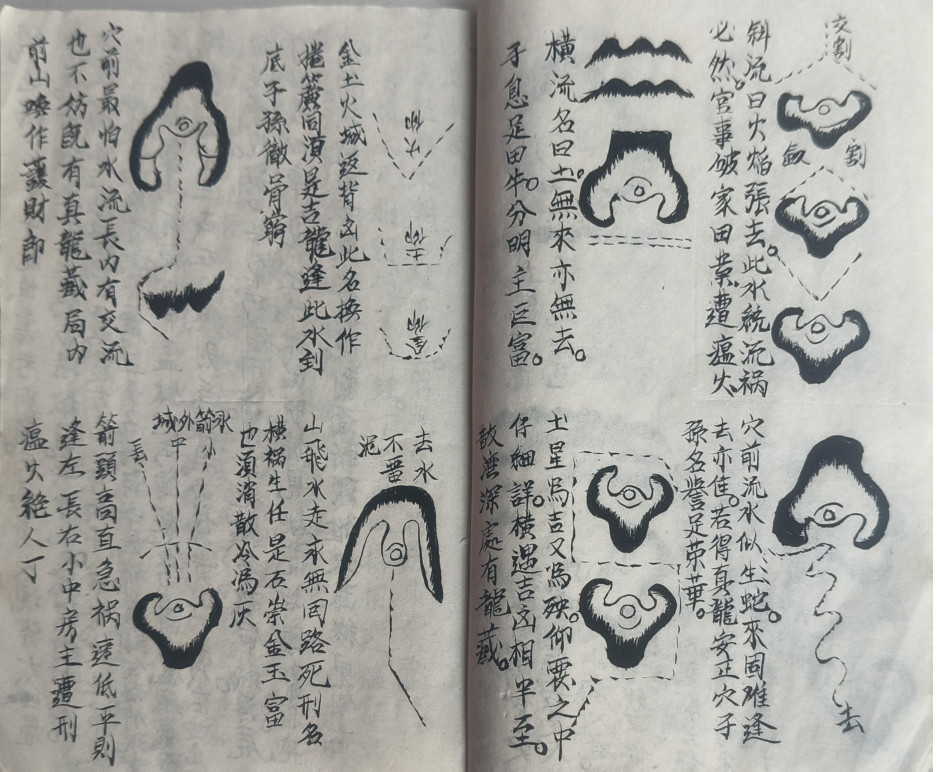 交割
割
斜流曰火焰張去此水繞流禍
必然。官事破家田業遭瘟火
橫流名曰土。無來亦無去。
子息足田牛。分明主巨富。
去
穴前流水似生蛇。來固难逢
去亦佳。若得真龍安正穴子
孫名譽足荣華。
土星為吉又為殃。仰要之中
仔細詳。橫遇吉凶相半至。
散漫深處有龍藏。
火仰
土仰
金仰
金土火城返背凶此名捲作
捲簾同須是吉龍逢此水到
底子孫徹骨窮
穴前最怕水流長内有交流
也不妨既有真龍藏局内
前山喚作護財郎
去水
不畱
泥
山飛水走永無回路死刑名
橫禍生任是石崇金玉富
也須消散冷為灰
水箭外城
小
中
長
箭頭高直急禍速低平則
逢左長右小中房主遭刑
瘟火絶人丁